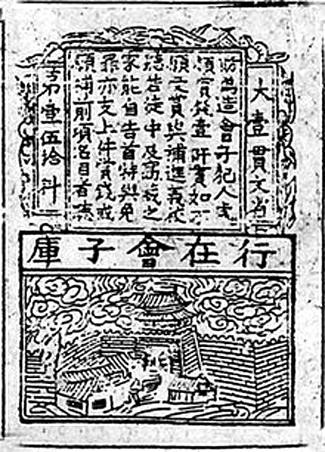 大壹貫文省
敕偽造會子犯人處
斬賞錢壹阡貫如不
願支賞與補進義校
尉若徒中及窩藏之
家能自告首特與免
罪亦支上件賞錢或
願補前項名目者聽
第壹伍拾料
行在會子庫